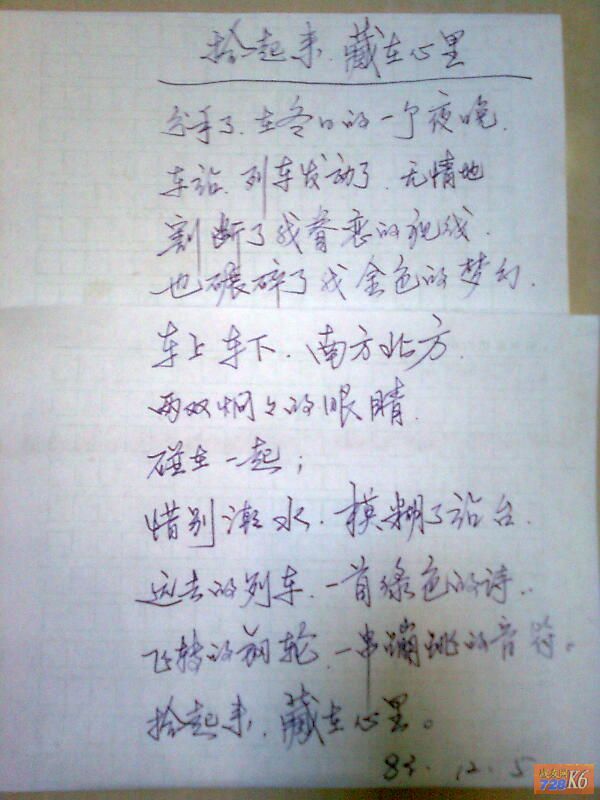 拾起来,藏在心里
分手了,在冬日的一个夜晚.
车站,列车发动了,无情地
割断了我眷恋的视线.
也碾碎了我金色的梦幻.
车上车下.南方北方.
两双炯々的眼睛.
碰在一起;
惜别潮水.模糊了站台.
远去的列车.一首绿色的诗..
飞转的钢轮,一串蹦跳的音符。
拾起来,藏在心里。
12.5
728K6